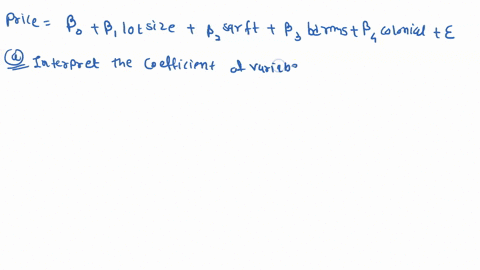 Price = β₀ + β₁ lotsize + β₂ sqrft + β₃ bdrms + β₄ colonial + ε
(a) Interpret the coefficient of variab